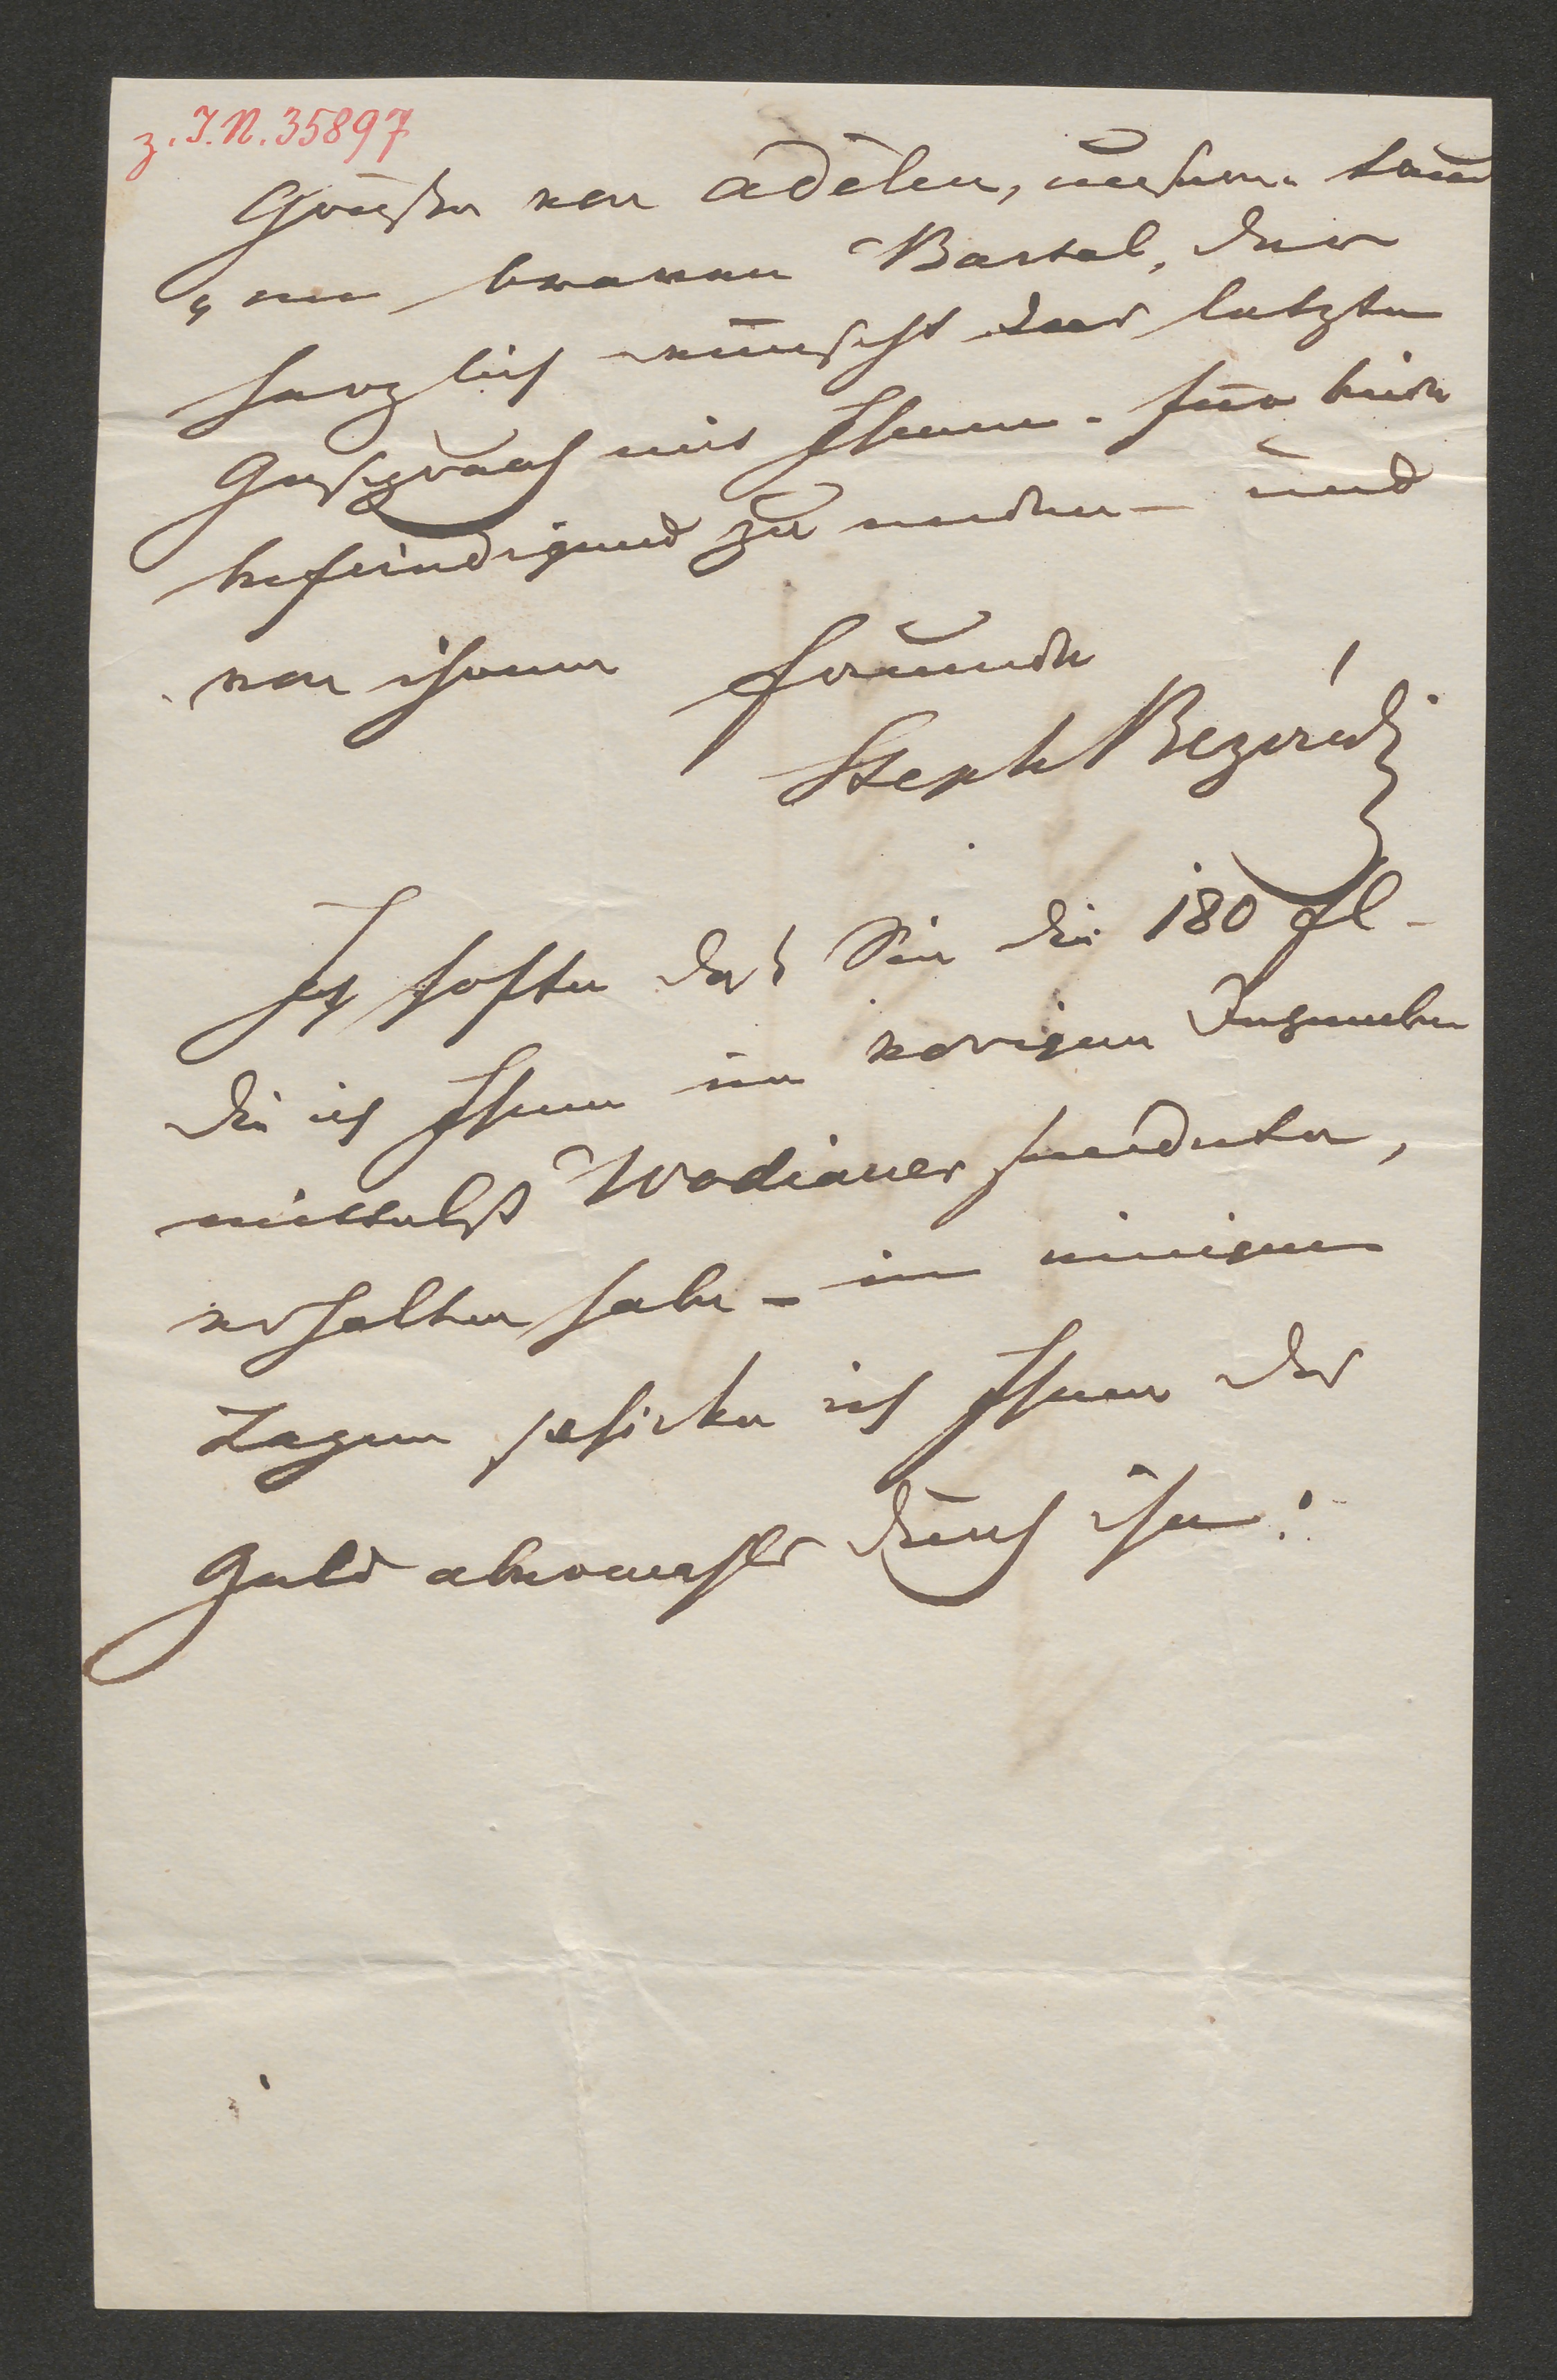 z. I. N. 35897
Grüße von Adelen, unseren
braven Bartal, der
herzlich wünscht das letzte
Gespräch mit Ihnen für beide
befriedigend zu enden – und
von ihrem Freunde
Steph Bezerédj
Ich hoffe daß Sie die 180 fl –
die ich Ihnen im vorigen Dezember
mittelst Wodianer sendete,
erhalten habe – in einigen
Tagen schicke ich Ihnen das
Geld abermahls durch ihn.